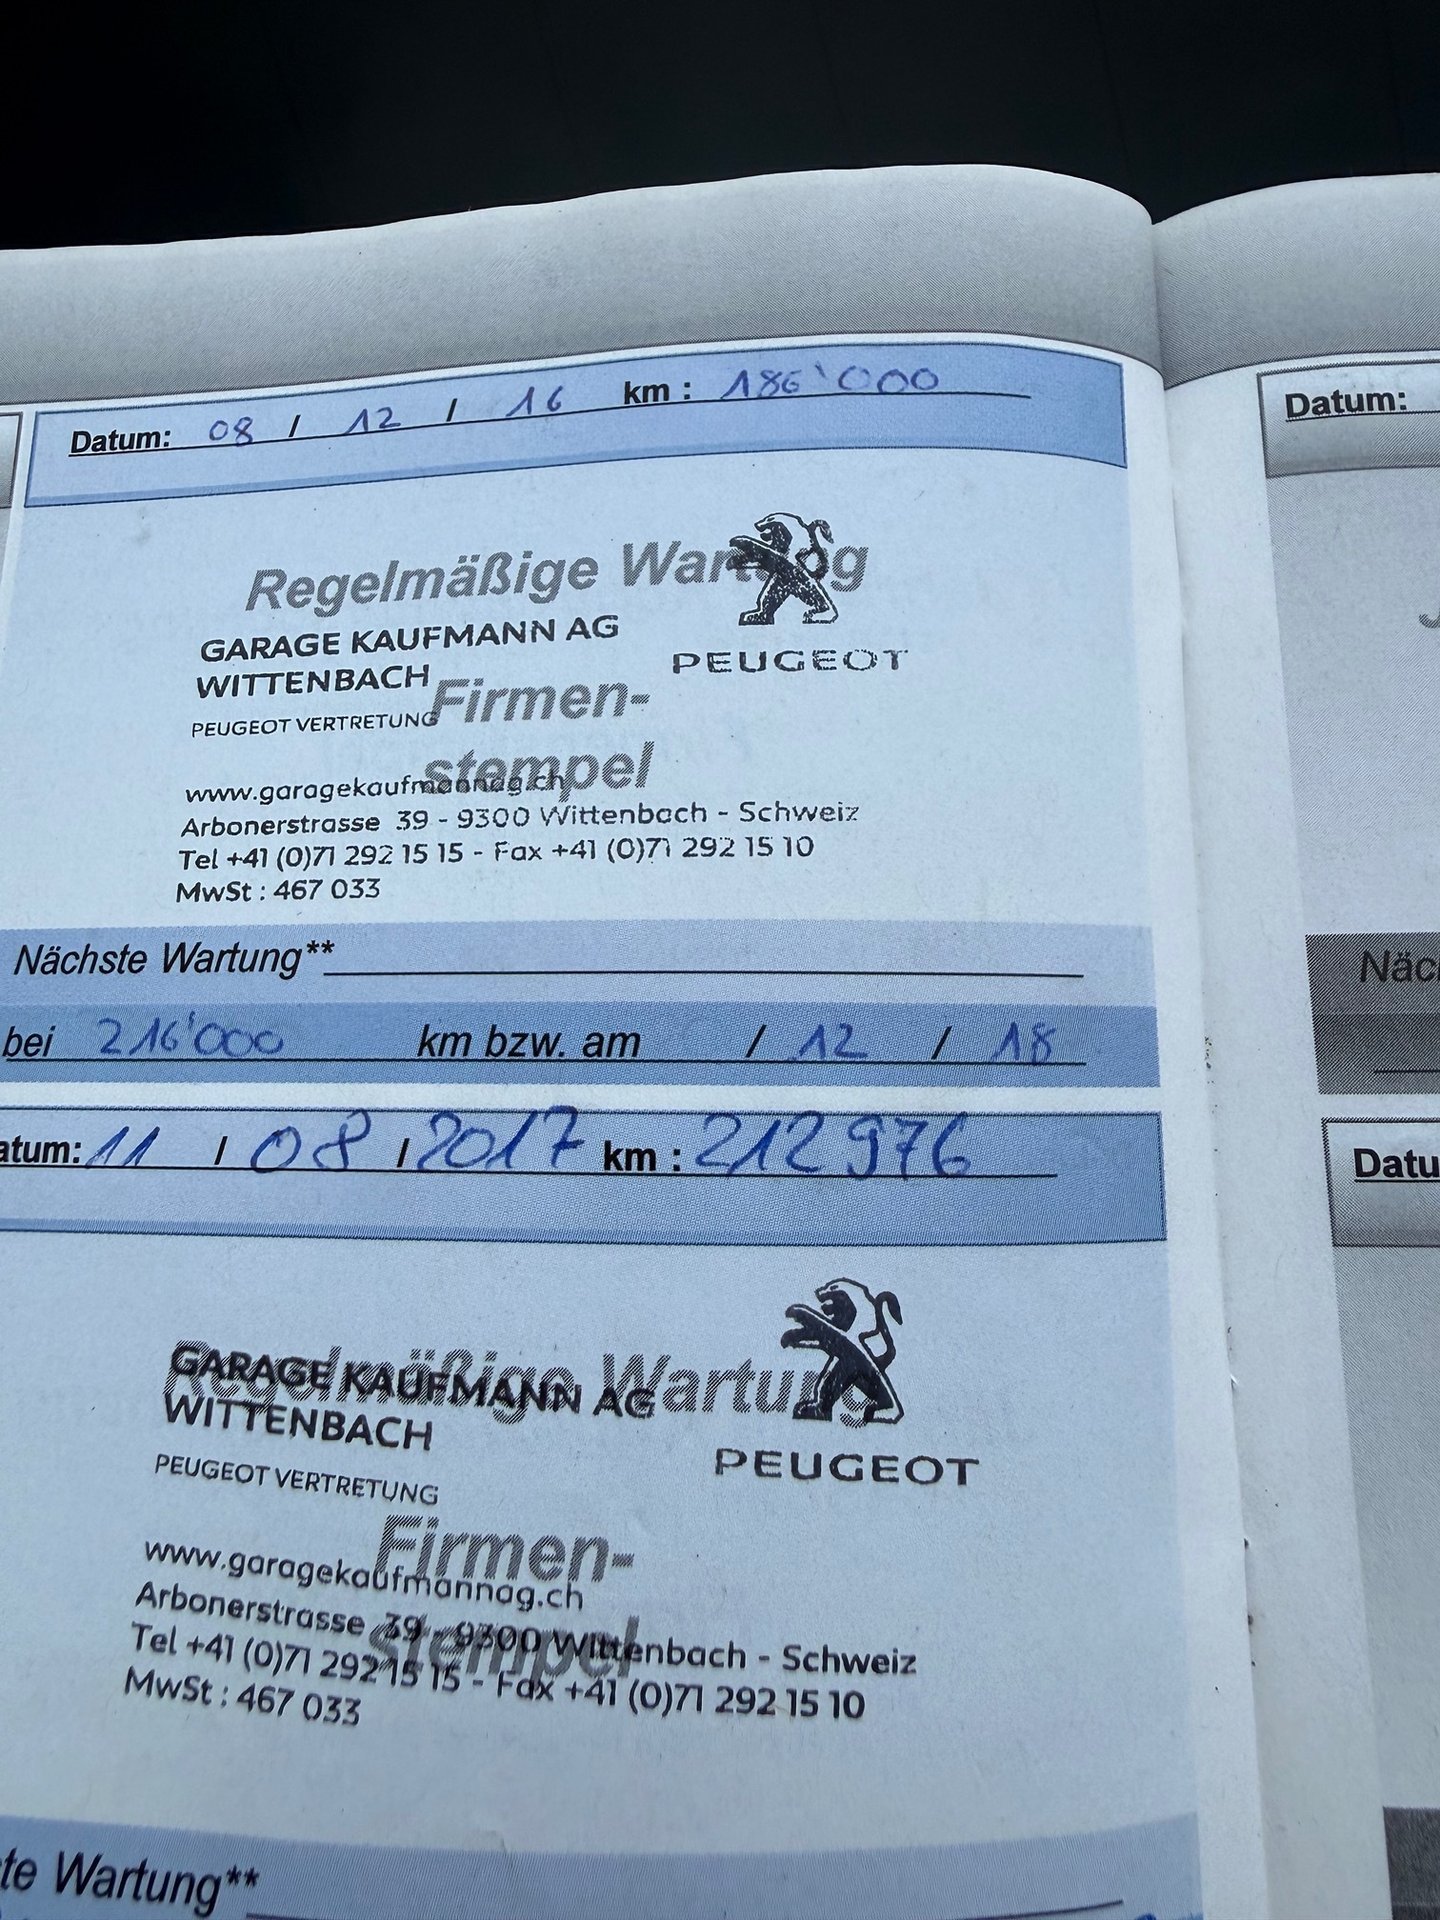 Datum: 08 / 12 / 16 km : 186'000
Regelmäßige Wartung
GARAGE KAUFMANN AG
WITTENBACH
PEUGEOT
PEUGEOT VERTRETUNG
Firmen-
stempel
www.garagekaufmannag.ch
Arbonerstrasse 39 - 9300 Wittenbach - Schweiz
Tel +41 (0)71 292 15 15 - Fax +41 (0)71 292 15 10
MwSt : 467 033
Nächste Wartung**
bei 216'000 km bzw. am / 12 / 18
atum: 11 / 08 / 2017 km : 212 976
Regelmäßige Wartung
GARAGE KAUFMANN AG
WITTENBACH
PEUGEOT
PEUGEOT VERTRETUNG
Firmen-
stempel
www.garagekaufmannag.ch
Arbonerstrasse 39 - 9300 Wittenbach - Schweiz
Tel +41 (0)71 292 15 15 - Fax +41 (0)71 292 15 10
MwSt : 467 033
te Wartung**
Datum:
Näc
Datu